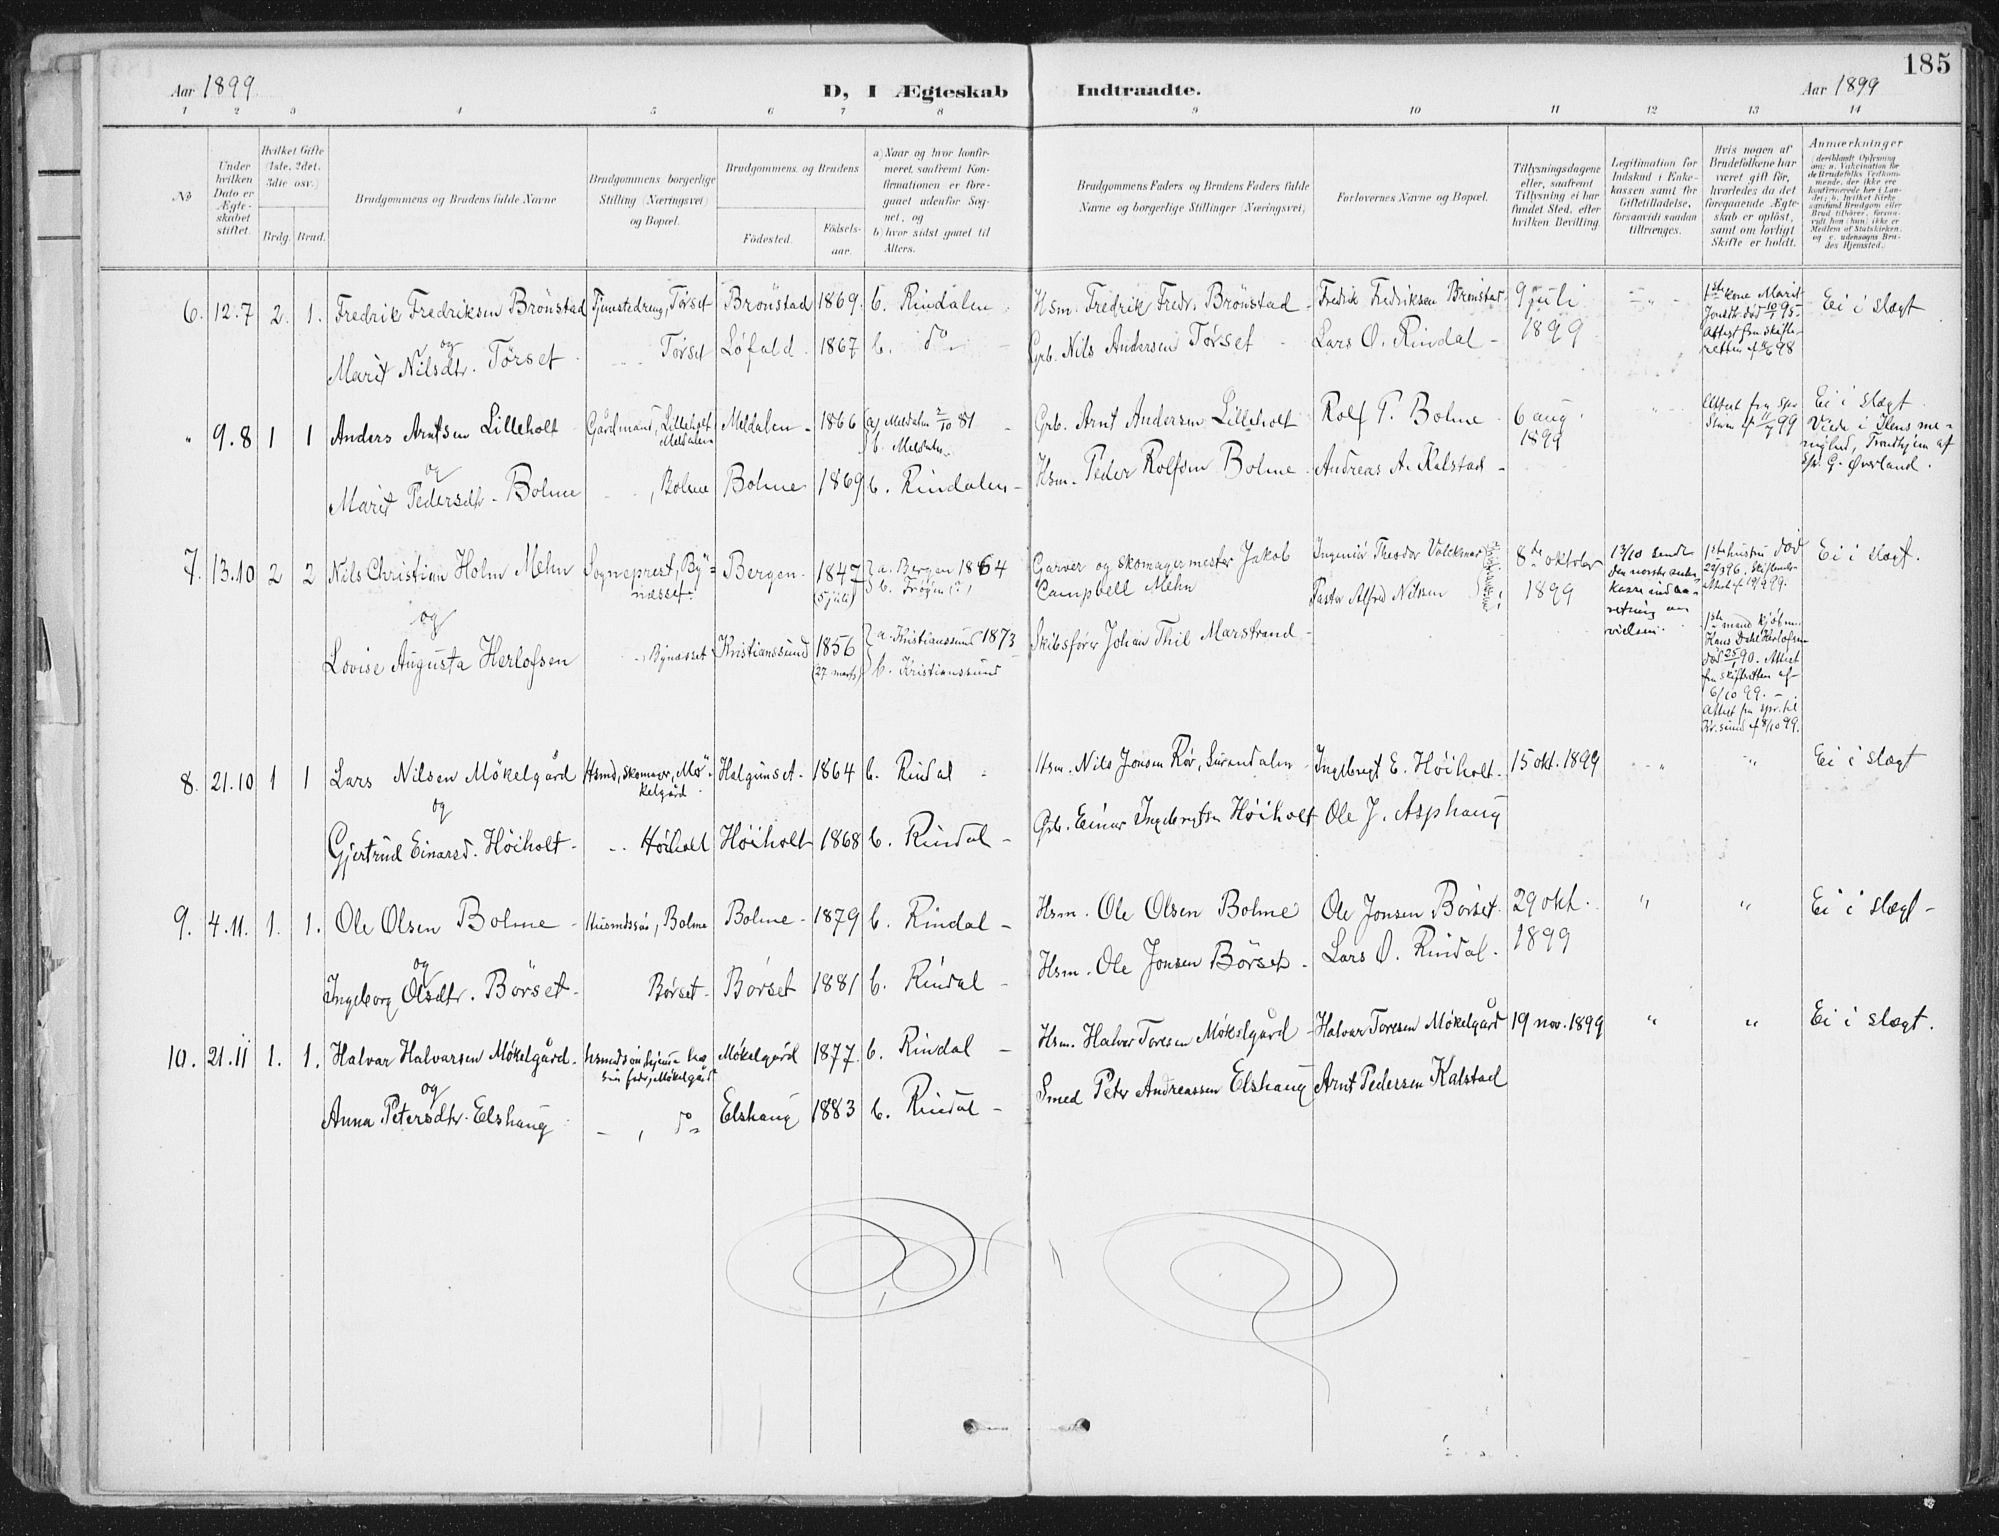 185
Aar 1899 D, I Ægteskab Indtraadte. Aar 1899
1 2 3 4 5 6 7 8 9 10 11 12 13 14
No
Under hvilken Dato er Ægteskabet stiftet.
Hvilket Gifte (1ste, 2det, 3die osv.)
Brdg. Brud.
Brudgommens og Brudens fulde Navne
Brudgommens borgerlige Stilling (Næringsvei) og Bopæl.
Brudgommens og Brudens
Fødested. Fødselsaar.
a) Naar og hvor konfirmeret, saafremt Konfirmationen er foregaaet udenfor Sognet, og
b) hvor sidst gaaet til Alters.
Brudgommens Faders og Brudens Faders fulde Navne og borgerlige Stillinger (Næringsvei)
Forlovernes Navne og Bopæl.
Tillysningsdagene eller, saafremt Tillysning ei har fundet Sted, efter hvilken Bevilling.
Legitimation for Indskud i Enkekassen samt for Giftetilladelse, forsaavidt saadan tiltrænges.
Hvis nogen af Brudefolkene har været gift før, hvorledes da det foregaaende Ægteskab er opløst, samt om lovligt Skifte er holdt.
Anmærkninger (deriblandt Oplysning om: a. Vaccination for de Brudefolks Vedkommende, der ikke ere konfirmerede her i Landet; b. hvilket Kirkesamfund Brudgom eller Brud tilhører, forsaavidt han (hun) ikke er Medlem af Statskirken, og c. udensogns Brudes Hjemsted.)
6. 12.7 2. 1. Fredrik Fredriksen Brönstad Tjenestedreng, Törset Brönstad 1869 b. Rindalen Hsm. Fredrik Fredr. Brönstad Fredrik Fredriksen Brönstad 9 juli 1899 1ste kone Marit Jonsdtr. död 10/1 95 Ei i slægt
og
Marit Nilsdtr. Törset Törset Löfald 1867 b. do Grb. Nils Andersen Törset Lars O. Rindal
" 9.8 1 1 Anders Arntsen Lilleholt Gårdmand, Lilleholt Meldalen Meldalen 1866 a) Meldalen 2/10 81 b. Meldalen Grb. Arnt Andersen Lilleholt Rolf P. Bolme 6 aug. 1899 Attest fra Spr. Ei i slægt. Viede i Ilens menighed, Trondhjem af Spr. G. Øverland.
og
Marit Pedersdtr. Bolme , Bolme Bolme 1869 b. Rindalen Hsm. Peder Rolfsen Bolme Andreas A. Kalstad
7. 13.10 2 2 Nils Christian Holm Mehn Sogneprest, Bynæsset Bergen 1847 (5 juli) a. Bergen 1864 b. Frøyen (?) Garver og skomagermester Jakob Campbell Mehn Ingeniör Theodor Volckmar Pastor Alfred Nilssen 8de oktober 1899 13/10 sendt den norske enkekasse indberetning om vielsen. 1ste hustru död 22/3 96. Ei i slægt.
og
Lovise Augusta Herlofsen Bynæsset Kristianssund 1856 (27 marts) a. Kristianssund 1873 b. Kristianssund Skibsförer Johan Thil Marstrand 1ste mand kjöbm. Hans Dahl Herlofsen död 25/1 90. Attest fra skifteretten af 6/10 99. Attest fra spr. til Kr.sund af 8/10 99.
8. 21.10 1 1 Lars Nilsen Mökelgård Hsmd, skomager, Mökelgård Halgunset 1864 b. Rindal Hsm. Nils Jonsen Rør, Surendalen Ingebrigt E. Höiholt 15 okt. 1899 " " Ei i slægt
og
Gjertrud Einarsd. Höiholt Höiholt Höiholt 1868 b. Rindal Grb. Einar Ingebrigtsen Höiholt Ole J. Asphaug
9. 4.11. 1. 1. Ole Olsen Bolme Husmdssön, Bolme Bolme 1879 b. Rindal Hsm. Ole Olsen Bolme Ole Jonsen Börset 29 okt. 1899 " " Ei i slægt
og
Ingeborg Olsdtr. Börset Börset Börset 1881 b. Rindal Hsm. Ole Jonsen Börset Lars O. Rindal
10. 21.11 1. 1. Halvar Halvarsen Mökelgård hsmdssön, hjemme hos sin fader, Mökelgård Mökelgård 1877 b. Rindal Hsm. Halvor Toresen Mökelgård Halvar Toresen Mökelgård 19 nov. 1899 " " Ei i slægt.
og
Anna Petersdtr. Elshaug , do Elshaug 1883 b. Rindal Smed Peter Andreassen Elshaug Arnt Pedersen Kalstad